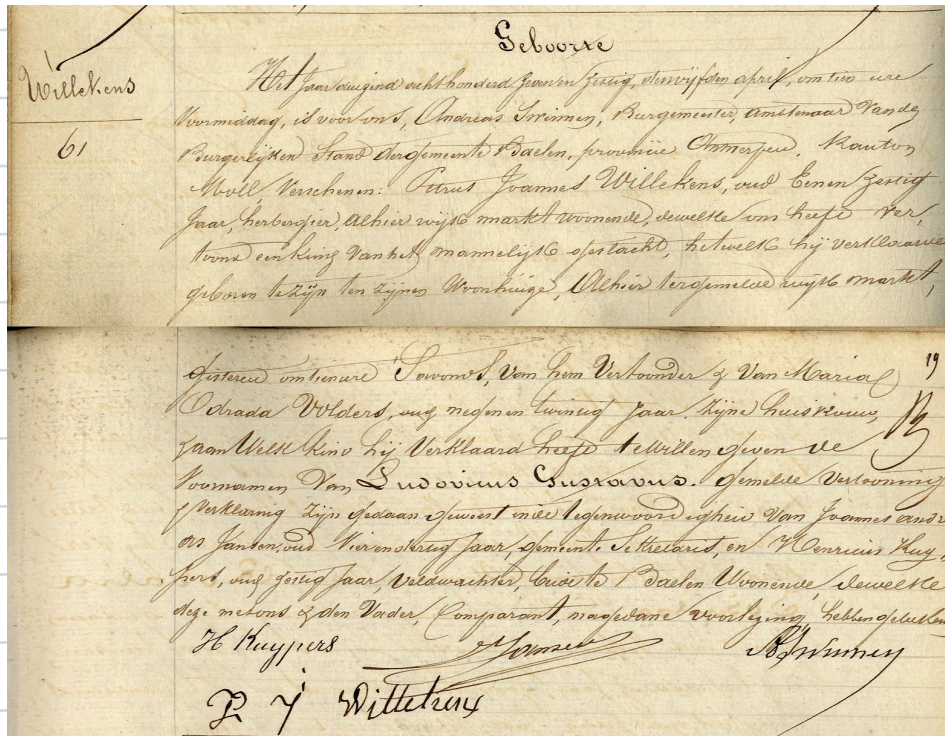 Geboorte
Willekens
61
Het Jaar duizend acht honderd zeven en zestig, den vyfden april, om tien ure
Voormiddag, is voor ons, Andreas Swinnen, Burgemeester, Ambtenaar Van den
Burgerlijken Stand der gemeente Baelen, provincie Antwerpen, Kanton
Moll, Verschenen: Petrus Joannes Willekens, oud Eenen Zestig
Jaar, herbergier, Alhier wijk markt woonende, dewelke ons heeft ver,
toond een kind van het mannelijk geslacht, hetwelk hij verklaarde
geboren te zijn ten zijnen Woonhuize, Alhier ter gemelde wijk markt,
19
gisteren om tien ure S'avonds, van hem Vertoonder & Van Maria
Odrada Volders, oud negen en twintig Jaar, zijne huisvrouw,
& aan Welk kind hij Verklaard heeft te willen geven de
Voornamen Van Ludovicus Gustavus. gemelde Vertooning
& Verklaring zijn gedaan geweest in de tegenwoordigheid Van Joannes andre
as Jansen, oud Vier en dertig Jaar, gemeente Sekretaris, en Henricus Kuy,
pers, oud zestig Jaar, Veldwachter, beide te Baelen Woonende, dewelke
deze met ons & den Vader, Comparant, na gedane voorlezing, hebben geteekend
H Kuypers
Jansen
A Swinnen
P J Willekens